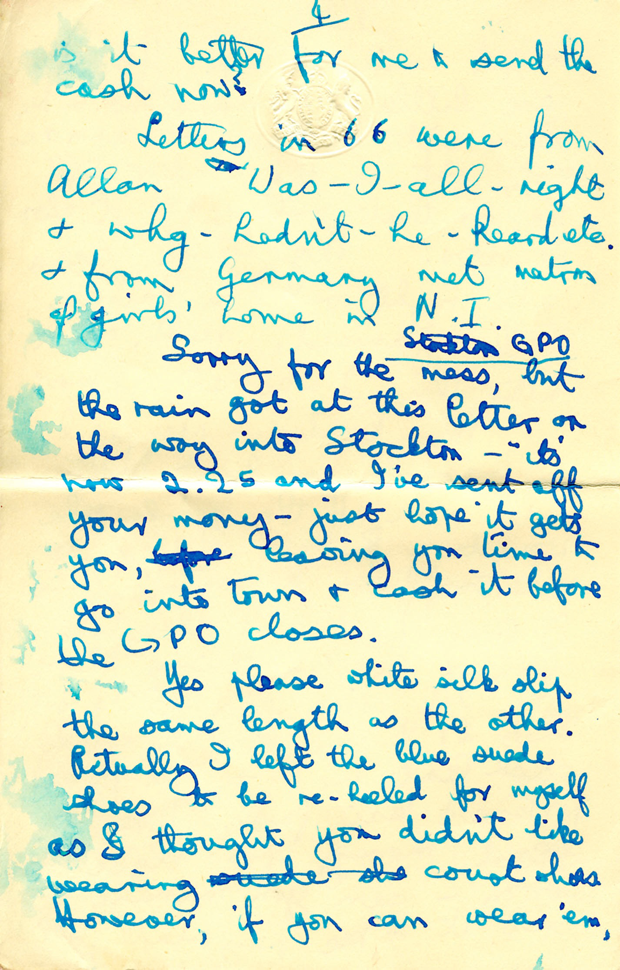 4
is it better for me to send the
cash now?
Letters in 66 were from
Allan Was-I-all-right
& why-hadn't-he-heard etc.
& from Germany met matron
of girls' home in N.I.
Stockton GPO
Sorry for the mess, but
the rain got at this letter on
the way into Stockton - "its"
now 2.25 and I've sent off
your money - just hope it gets
you, before leaving you time to
go into town & cash it before
the GPO closes.
Yes please white silk slip
the same length as the other.
Actually I left the blue suede
shoes to be re-heeled for myself
as I thought you didn't like
wearing suede sho court shoes.
However, if you can wear 'em,